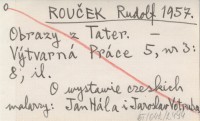 o
ROUČEK Rudolf 1957.
Obrazy z Tater. –
Výtvarná Práce 5, nr 3:
8, il.
O wystawie czeskich
malarzy: Jan Hála i Jaroslav Votruba